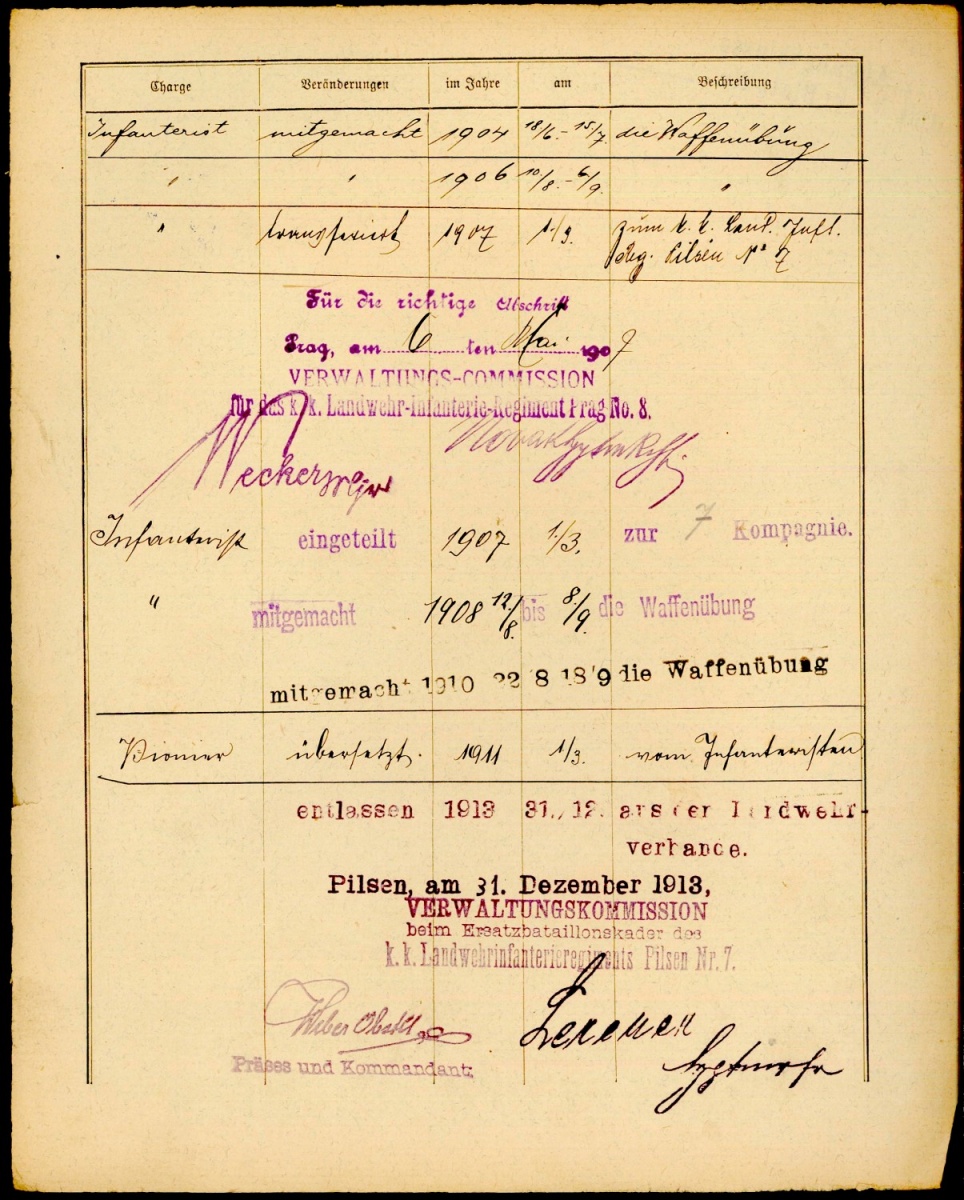 Charge Veränderungen im Jahre am Beschreibung
Infanterist mitgemacht 1904 18/6.-15/7. die Waffenübung
" " 1906 10/8.-6/9. "
" transferiert 1907 1/3. zum k. k. Land. Inft.
Reg. Pilsen No 7
Für die richtige Abschrift
Prag, am 6 ten Mai 1907
VERWALTUNGS-COMMISSION
für das k. k. Landwehr-Infanterie-Regiment Prag No. 8.
Infanterist eingeteilt 1907 1/3. zur 7 Kompagnie.
" mitgemacht 1908 12/8. bis 8/9. die Waffenübung
mitgemacht 1910 22 8 18 9 die Waffenübung
Pionier übersetzt. 1911 1/3. vom Infanteristen
entlassen 1913 31./12. aus der Landwehr-
verbande.
Pilsen, am 31. Dezember 1913,
VERWALTUNGSKOMMISSION
beim Ersatzbataillonskader des
k. k. Landwehrinfanterieregiments Pilsen Nr. 7.
Weber Obstlt
Präses und Kommandant: